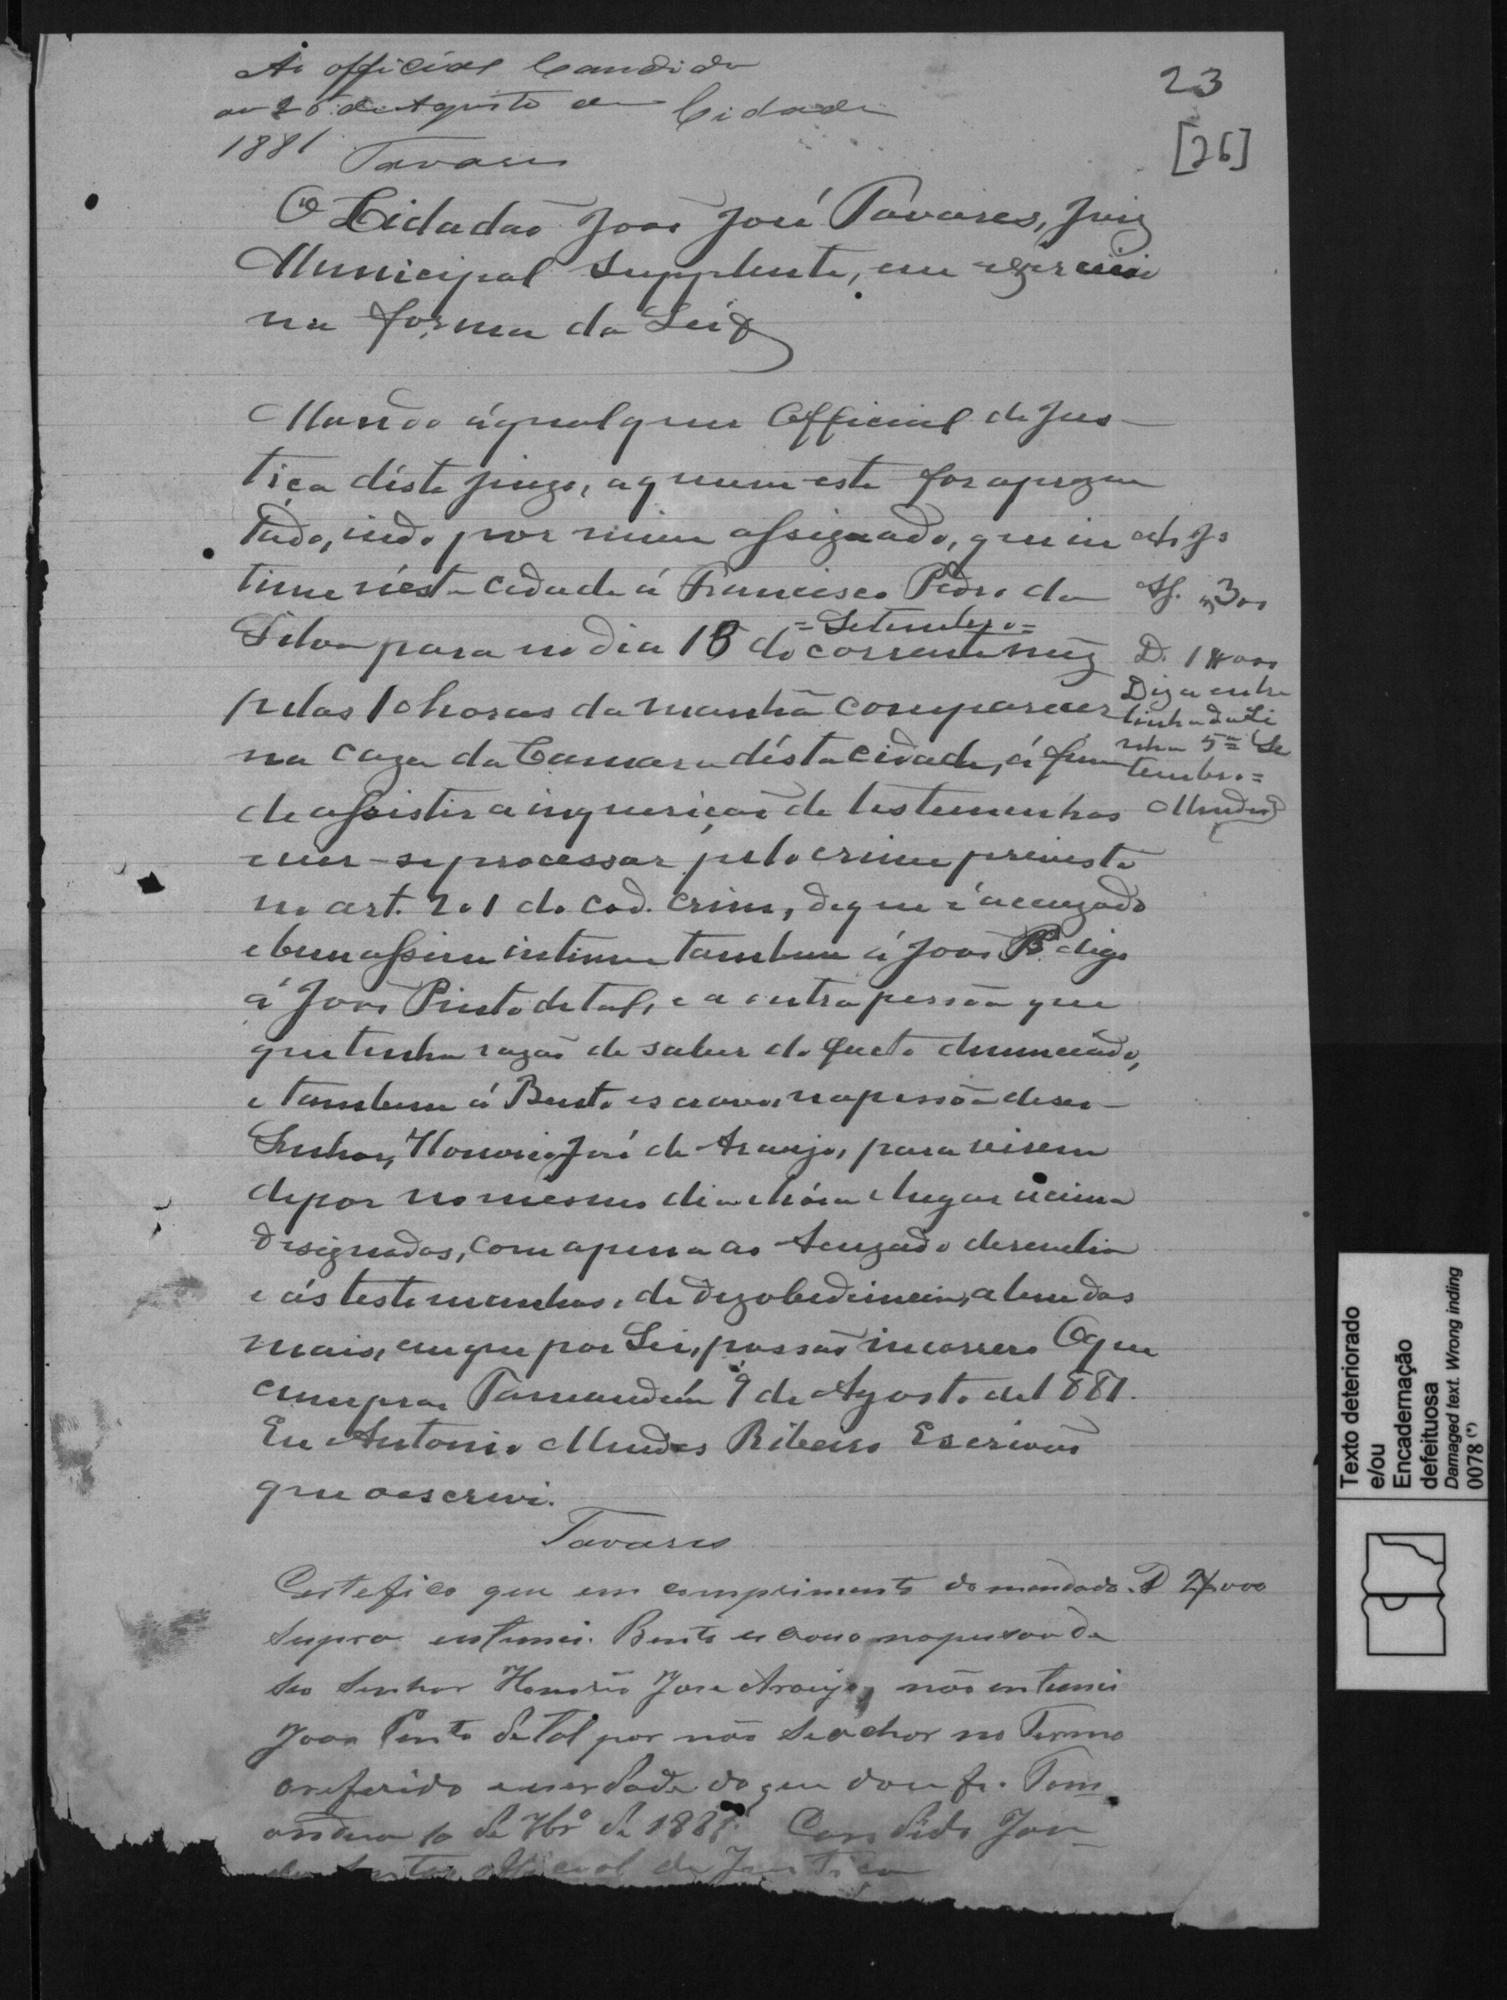 Ao official Candido
aos 26 de Agosto de Cidade
1881 Tavares
23
[26]
O Cidadão João José Tavares, Juiz
Municipal Supplente, em exercicio
na forma da Lei &
Mando áqualquer Official de Jus-
tiça déste juizo, aquem este for aprezen
tado, indo por mim assignado, que in
time nésta cidade á Francisco Pedro da
=Setembro=
Silva para no dia 13 do corrente mêz
pelas 10 horas da manhã comparecer
na caza da Camara désta cidade, á fim
de assistir a inquerição de testemunhas
e ver-se processar pelo crime previsto
no art. 201 do Cod. Crim, de que é acuzado
e bem assim intime tambem á João P. digo
á João Pinto de tal, e a outra pessôa que
que tenha razão de saber do facto denunciado,
e tambem á Bento escravo, na pessôa de seu
Senhor, Honorio José de Araujo, para virem
depor no mesmo dia e hóra e lugar acima
designados, com a pena ao Acuzado de revelia
e ás testemunhas, de dezobediencia, alem das
mais, em que por Lei, possão incorrer. O que
cumpra. Tamanduá 9 de Agosto de 1881.
Eu Antonio Mendes Ribeiro Escrivão
que o escrevi.
Tavares
D. 1#000
Diga entre
linha da Li
nha 5ª = Se
tembro =
Mendes
Certefico que em comprimento do mandado D 2#000
supra entimei Bento escravo na pessoa de
seo Senhor Honorio Jose Araujo, não entimei
Joao Pinto de Tal por não se achar no Termo
o referido e verdade do que dou fe. Tam
andua 10 de 7brº de 1881. Candido Jose
dos Santos official de Justiça
Texto deteriorado
e/ou
Encadernação
defeituosa
Damaged text. Wrong inding
0078 (*)